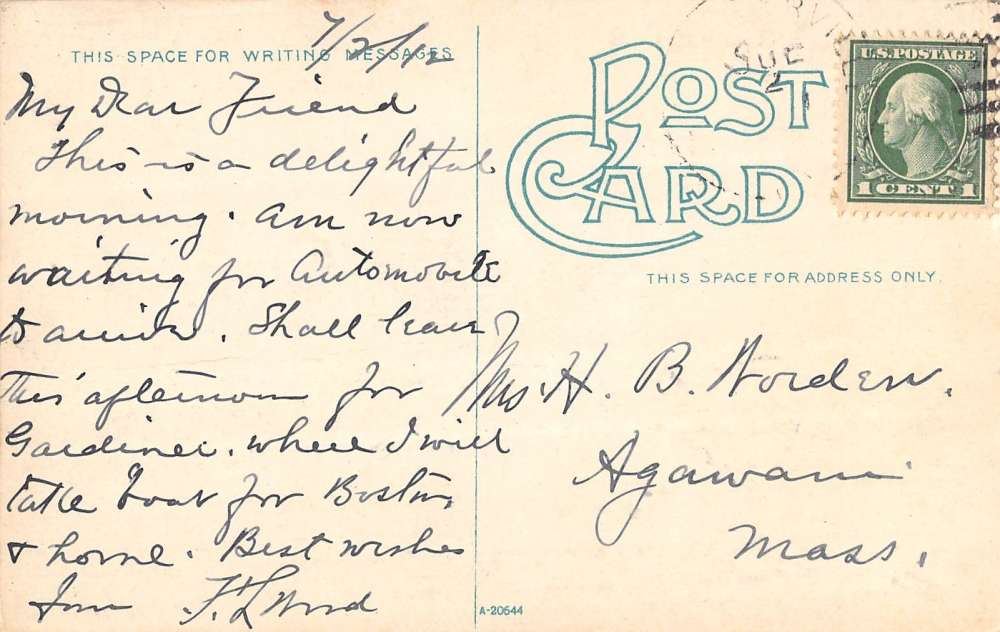 THIS SPACE FOR WRITING MESSAGES
7/2/12
My Dear Friend
This is a delightful
morning. Am now
waiting for Automobile
to arrive. Shall leave
this afternoon for
Gardiner. where I will
take boat for Boston,
& home. Best wishes
from F. L. Wood
POST CARD
THIS SPACE FOR ADDRESS ONLY.
Mrs. H. B. Worden.
Agawam
Mass.
U.S. POSTAGE
1 CENT 1
2
A-20544